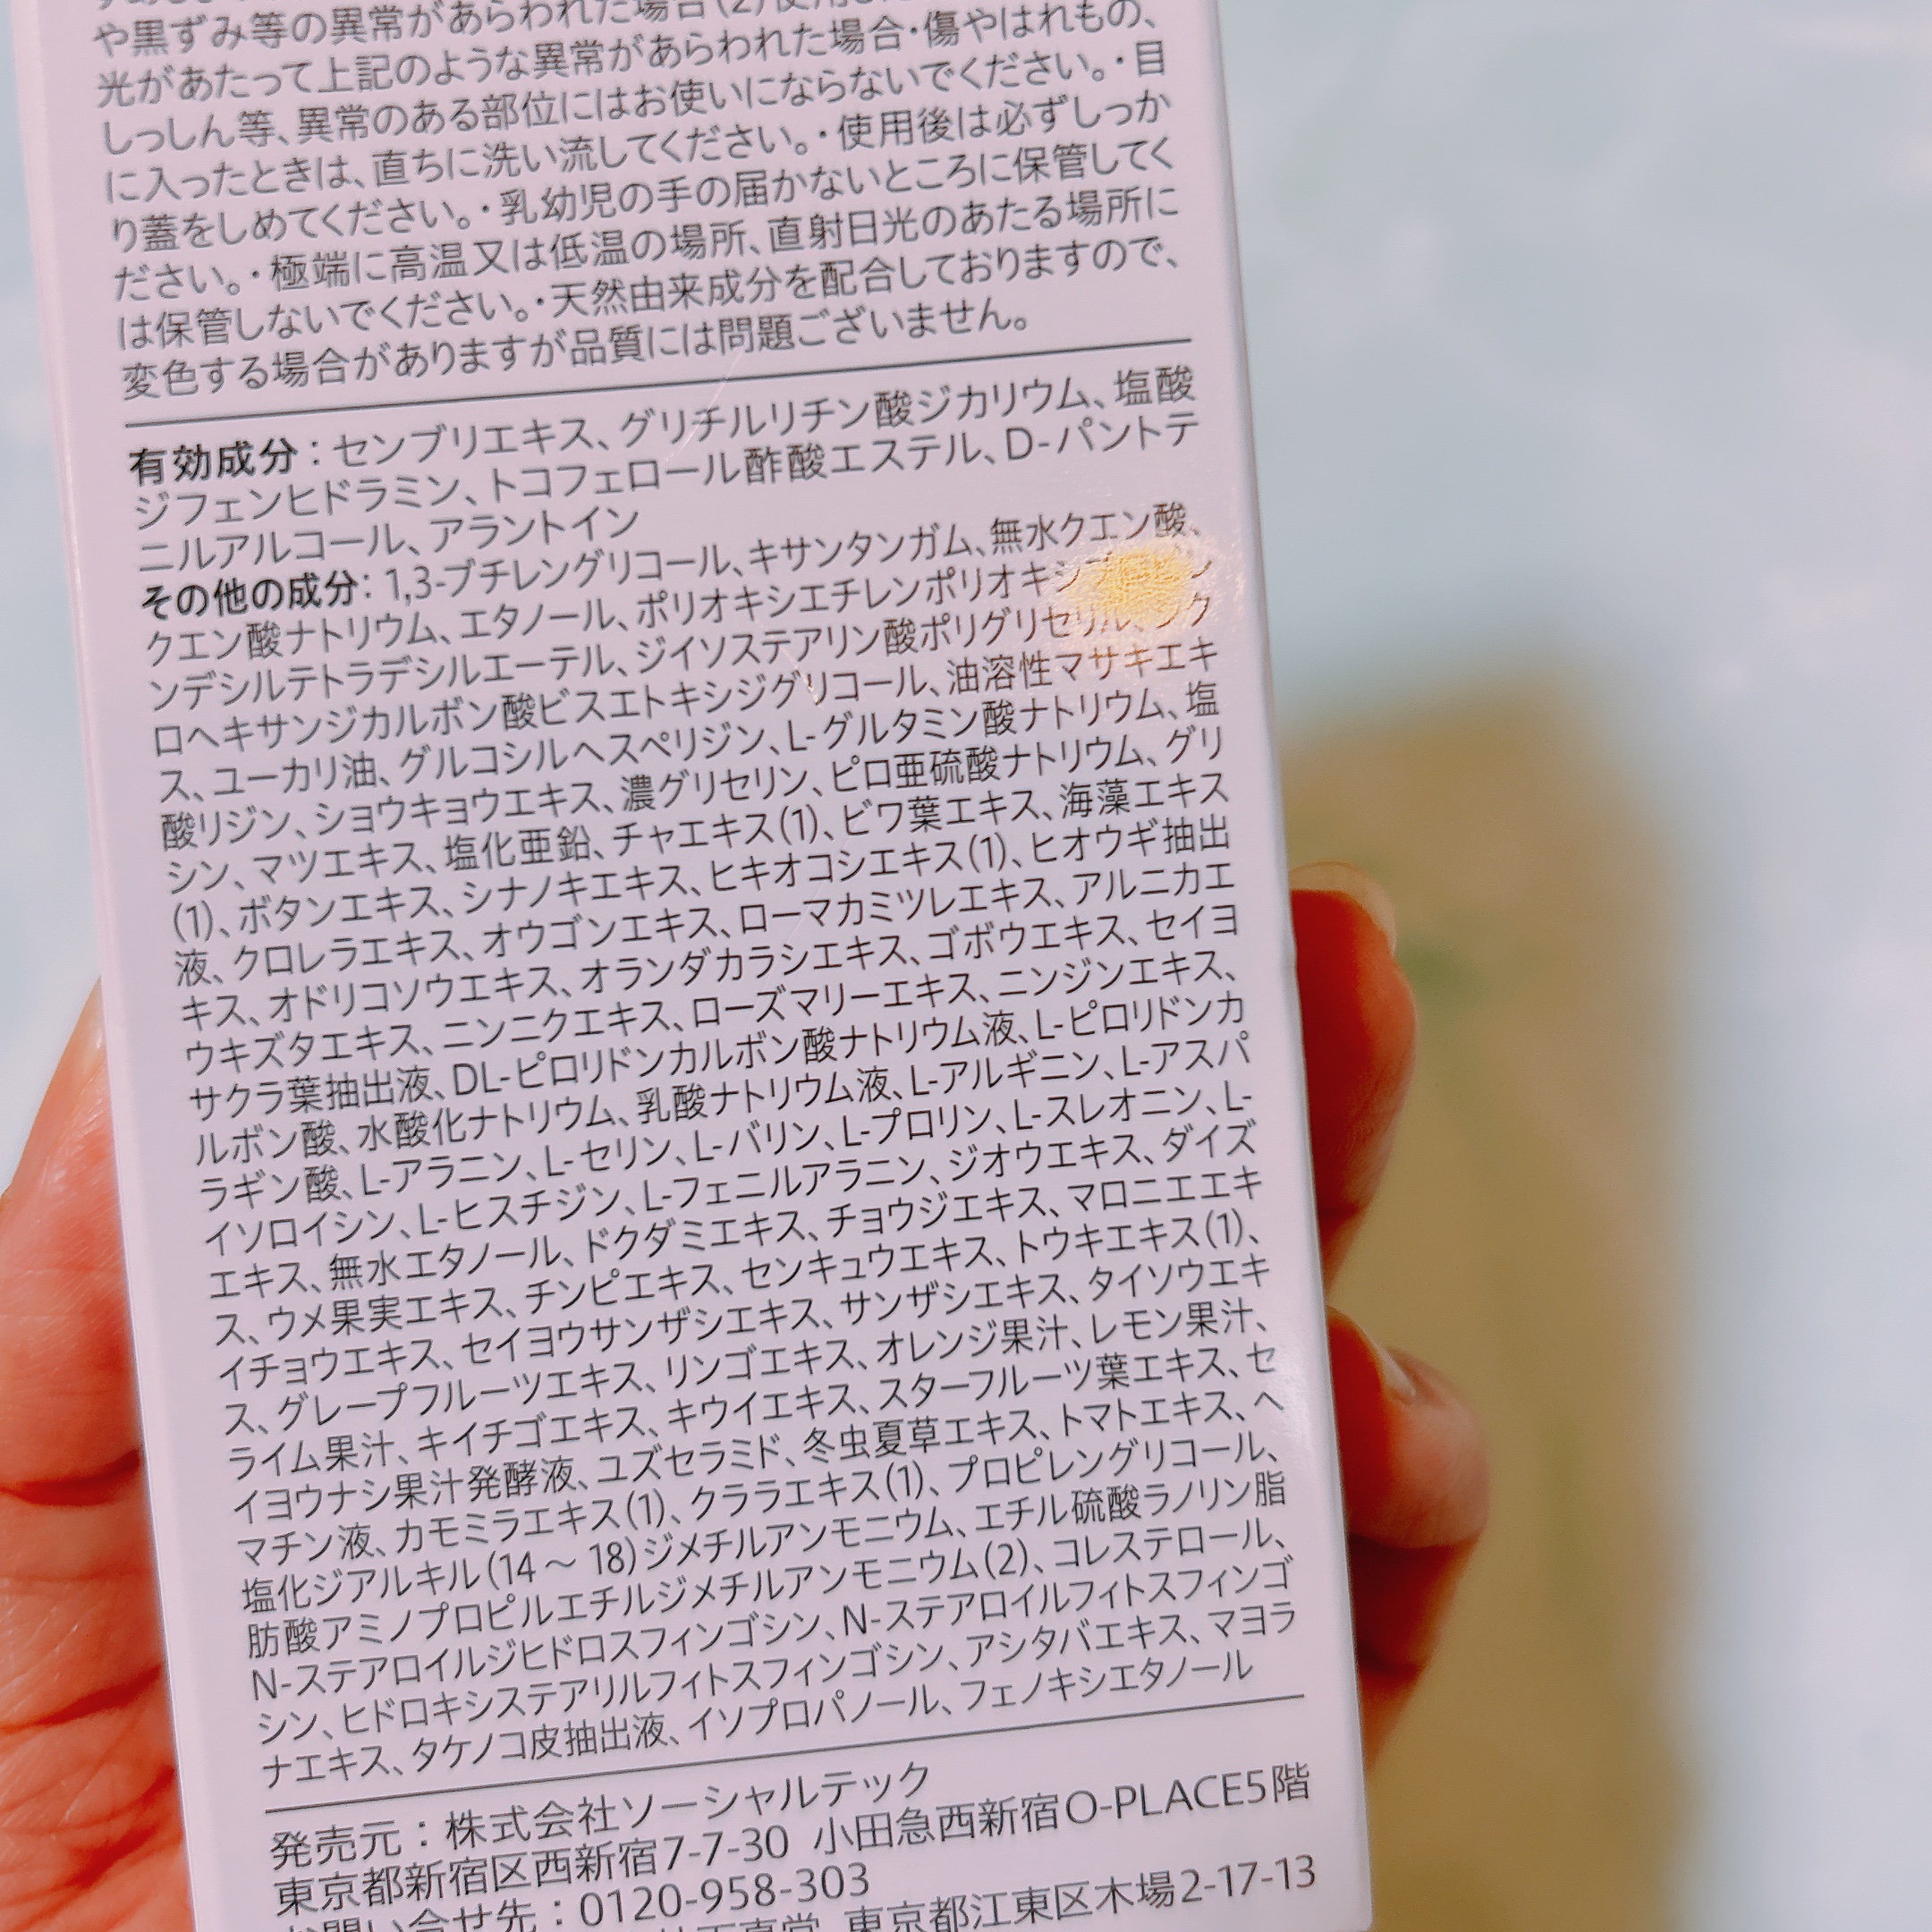 や黒ずみ等の異常があらわれた場合(2)使用
光があたって上記のような異常があらわれた場合・傷やはれもの、
しっしん等、異常のある部位にはお使いにならないでください。・目
に入ったときは、直ちに洗い流してください。・使用後は必ずしっか
り蓋をしめてください。・乳幼児の手の届かないところに保管してく
ださい。・極端に高温又は低温の場所、直射日光のあたる場所に
は保管しないでください。・天然由来成分を配合しておりますので、
変色する場合がありますが品質には問題ございません。
有効成分：センブリエキス、グリチルリチン酸ジカリウム、塩酸
ジフェンヒドラミン、トコフェロール酢酸エステル、D-パントテ
ニルアルコール、アラントイン
その他の成分：1,3-ブチレングリコール、キサンタンガム、無水クエン酸、
クエン酸ナトリウム、エタノール、ポリオキシエチレンポリオキシプロピレン
デシルテトラデシルエーテル、ジイソステアリン酸ポリグリセリル、シク
ロヘキサンジカルボン酸ビスエトキシジグリコール、油溶性マサキエキ
ス、ユーカリ油、グルコシルヘスペリジン、L-グルタミン酸ナトリウム、塩
酸リジン、ショウキョウエキス、濃グリセリン、ピロ亜硫酸ナトリウム、グリ
シン、マツエキス、塩化亜鉛、チャエキス(1)、ビワ葉エキス、海藻エキス
(1)、ボタンエキス、シナノキエキス、ヒキオコシエキス(1)、ヒオウギ抽出
液、クロレラエキス、オウゴンエキス、ローマカミツレエキス、アルニカエ
キス、オドリコソウエキス、オランダカラシエキス、ゴボウエキス、セイヨ
ウキズタエキス、ニンニクエキス、ローズマリーエキス、ニンジンエキス、
サクラ葉抽出液、DL-ピロリドンカルボン酸ナトリウム液、L-ピロリドンカ
ルボン酸、水酸化ナトリウム、乳酸ナトリウム液、L-アルギニン、L-アスパ
ラギン酸、L-アラニン、L-セリン、L-バリン、L-プロリン、L-スレオニン、L-
イソロイシン、L-ヒスチジン、L-フェニルアラニン、ジオウエキス、ダイズ
エキス、無水エタノール、ドクダミエキス、チョウジエキス、マロニエエキ
ス、ウメ果実エキス、チンピエキス、センキュウエキス、トウキエキス(1)、
イチョウエキス、セイヨウサンザシエキス、サンザシエキス、タイソウエキ
ス、グレープフルーツエキス、リンゴエキス、オレンジ果汁、レモン果汁、
ライム果汁、キイチゴエキス、キウイエキス、スターフルーツ葉エキス、セ
イヨウナシ果汁発酵液、ユズセラミド、冬虫夏草エキス、トマトエキス、ヘ
マチン液、カモミラエキス(1)、クララエキス(1)、プロピレングリコール、
塩化ジアルキル(14～18)ジメチルアンモニウム、エチル硫酸ラノリン脂
肪酸アミノプロピルエチルジメチルアンモニウム(2)、コレステロール、
N-ステアロイルジヒドロスフィンゴシン、N-ステアロイルフィトスフィンゴ
シン、ヒドロキシステアリルフィトスフィンゴシン、アシタバエキス、マヨラ
ナエキス、タケノコ皮抽出液、イソプロパノール、フェノキシエタノール
発売元：株式会社ソーシャルテック
東京都新宿区西新宿7-7-30 小田急西新宿O-PLACE5階
お問い合せ先：0120-958-303
東京都江東区木場2-17-13